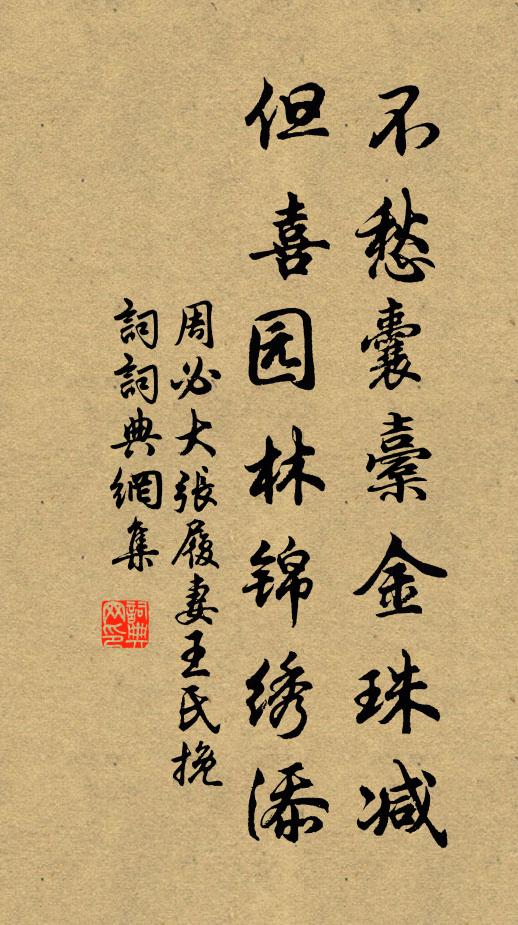 不愁囊橐金珠减
但喜园林锦绣添
周必大張履妻王氏挽
詞詞典網集
詞典网印